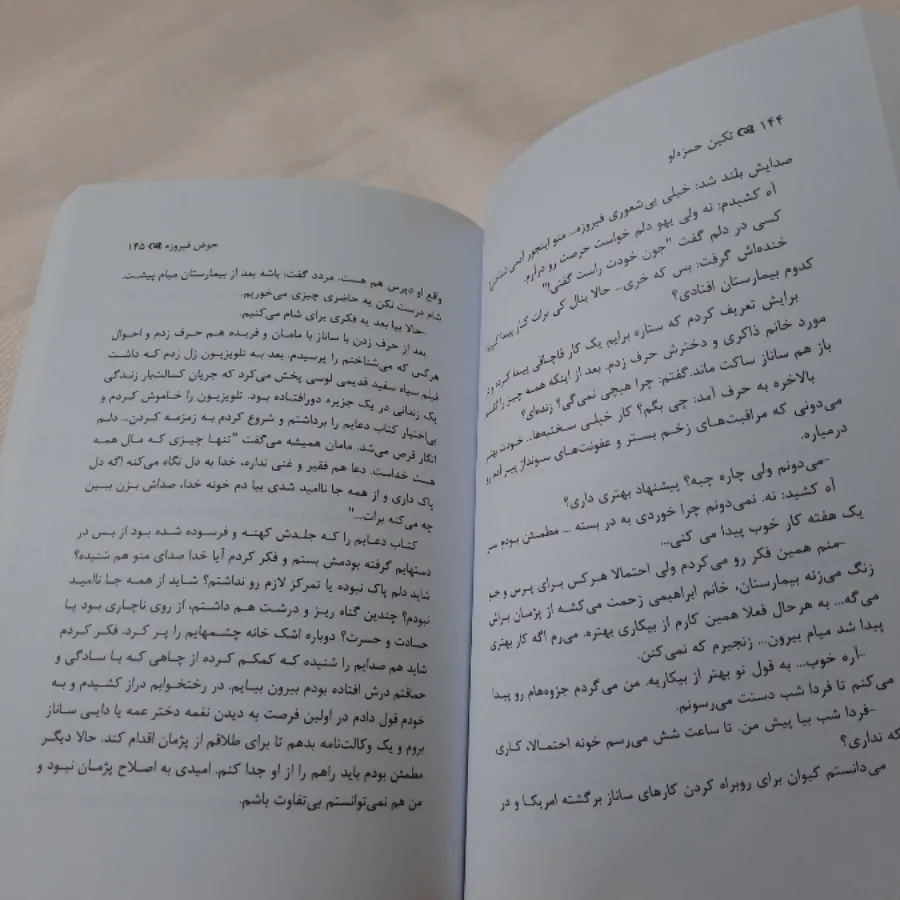 ۱۴۴ تکین حمزه‌لو
صدایش بلند شد: خیلی بی‌شعوری فیروزه... منو اینجور
آه کشیدم: نه ولی یهو دلم خواست حرصت رو درآرم.
کسی در دلم گفت "جون خودت راست گفتی!"
خنده‌اش گرفت: بس که خری... حالا بنال کی برات کار پیدا کرده؟
کدوم بیمارستان افتادی؟
برایش تعریف کردم که ستاره برایم یک کار قاچاقی پیدا کرده و در
مورد خانم ذاکری و دخترش حرف زدم. بعد از اینکه همه چیز را گفتم
باز هم ساناز ساکت ماند. گفتم: چرا هیچی نمی‌گی؟ زنده‌ای؟
بالاخره به حرف آمد: چی بگم؟ کار خیلی سختیه‌ها... خودت بهتر
می‌دونی که مراقبت‌های زخم بستر و عفونت‌های سونداژ پیر آدم رو
درمیاره.
-می‌دونم ولی چاره چیه؟ پیشنهاد بهتری داری؟
آه کشید: نه. نمی‌دونم چرا خوردی به در بسته ... مطمئن بودم سر
یک هفته کار خوب پیدا می کنی...
-منم همین فکر رو می‌کردم ولی احتمالا هرکس برای پرس و جو
زنگ می‌زنه بیمارستان، خانم ابراهیمی زحمت می‌کشه از پژمان براش
می‌گه... به هرحال فعلا همین کارم از بیکاری بهتره. می‌رم اگه کار بهتری
پیدا شد میام بیرون... زنجیرم که نمی‌کنن.
-آره خوب... به قول تو بهتر از بیکاریه. من می‌گردم جزوه‌هام رو پیدا
می‌کنم تا فردا شب دستت می‌رسونم.
-فردا شب بیا پیش من. تا ساعت شش می‌رسم خونه احتمالا، کاری
که نداری؟
می‌دانستم کیوان برای روبراه کردن کارهای ساناز برگشته امریکا و در
حوض فیروزه ۱۴۵
واقع او دپرس هم هست. مردد گفت: باشه بعد از بیمارستان میام پیشت.
شام درست نکن یه حاضری چیزی می‌خوریم.
-حالا بیا بعد یه فکری برای شام می‌کنیم.
بعد از حرف زدن با ساناز با مامان و فریده هم حرف زدم و احوال
هرکس که می‌شناختم را پرسیدم. بعد به تلویزیون زل زدم که داشت
فیلم سیاه سفید قدیمی لوسی پخش می‌کرد که جریان کسالت‌بار زندگی
یک زندانی در یک جزیره دورافتاده بود. تلویزیون را خاموش کردم و
بی‌اختیار کتاب دعایم را برداشتم و شروع کردم به زمزمه کردن... دلم
انگار قرص می‌شد. مامان همیشه می‌گفت "تنها چیزی که مال همه
هست خداست. دعا هم فقیر و غنی نداره، خدا به دل نگاه می‌کنه اگه دل
پاک داری و از همه جا ناامید شدی بیا دم خونه خدا، صداش بزن ببین
چه می‌کنه برات..."
کتاب دعایم را که جلدش کهنه و فرسوده شده بود از بس در
دستهایم گرفته بودمش بستم و فکر کردم آیا خدا صدای منو هم شنیده؟
شاید دلم پاک نبوده یا تمرکز لازم رو نداشتم؟ شاید از همه جا ناامید
نبودم؟ چندین گناه ریز و درشت هم داشتم، از روی ناچاری بود یا
حسادت و حسرت؟ دوباره اشک خانه چشمهایم را پر کرد. فکر کردم
شاید هم صدایم را شنیده که کمکم کرده از چاهی که با سادگی و
حماقتم درش افتاده بودم بیرون بیایم. در رختخوابم دراز کشیدم و به
خودم قول دادم در اولین فرصت به دیدن نغمه دختر عمه یا دایی ساناز
بروم و یک وکالت‌نامه بدهم تا برای طلاقم از پژمان اقدام کند. حالا دیگر
مطمئن بودم باید راهم را از او جدا کنم. امیدی به اصلاح پژمان نبود و
من هم نمی‌توانستم بی‌تفاوت باشم.